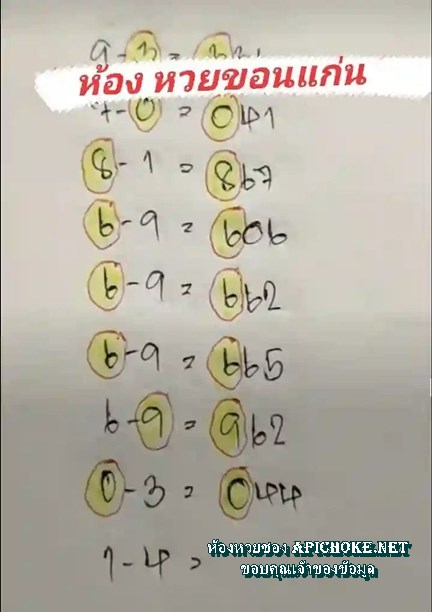 ห้อง หวยขอนแก่น
7-0 = 041
8-1 = 867
6-9 = 606
6-9 = 662
6-9 = 665
6-9 = 962
0-3 = 044
1-4 =
ห้องหวยซอง APICHOKE.NET
ขอบคุณเจ้าของข้อมูล